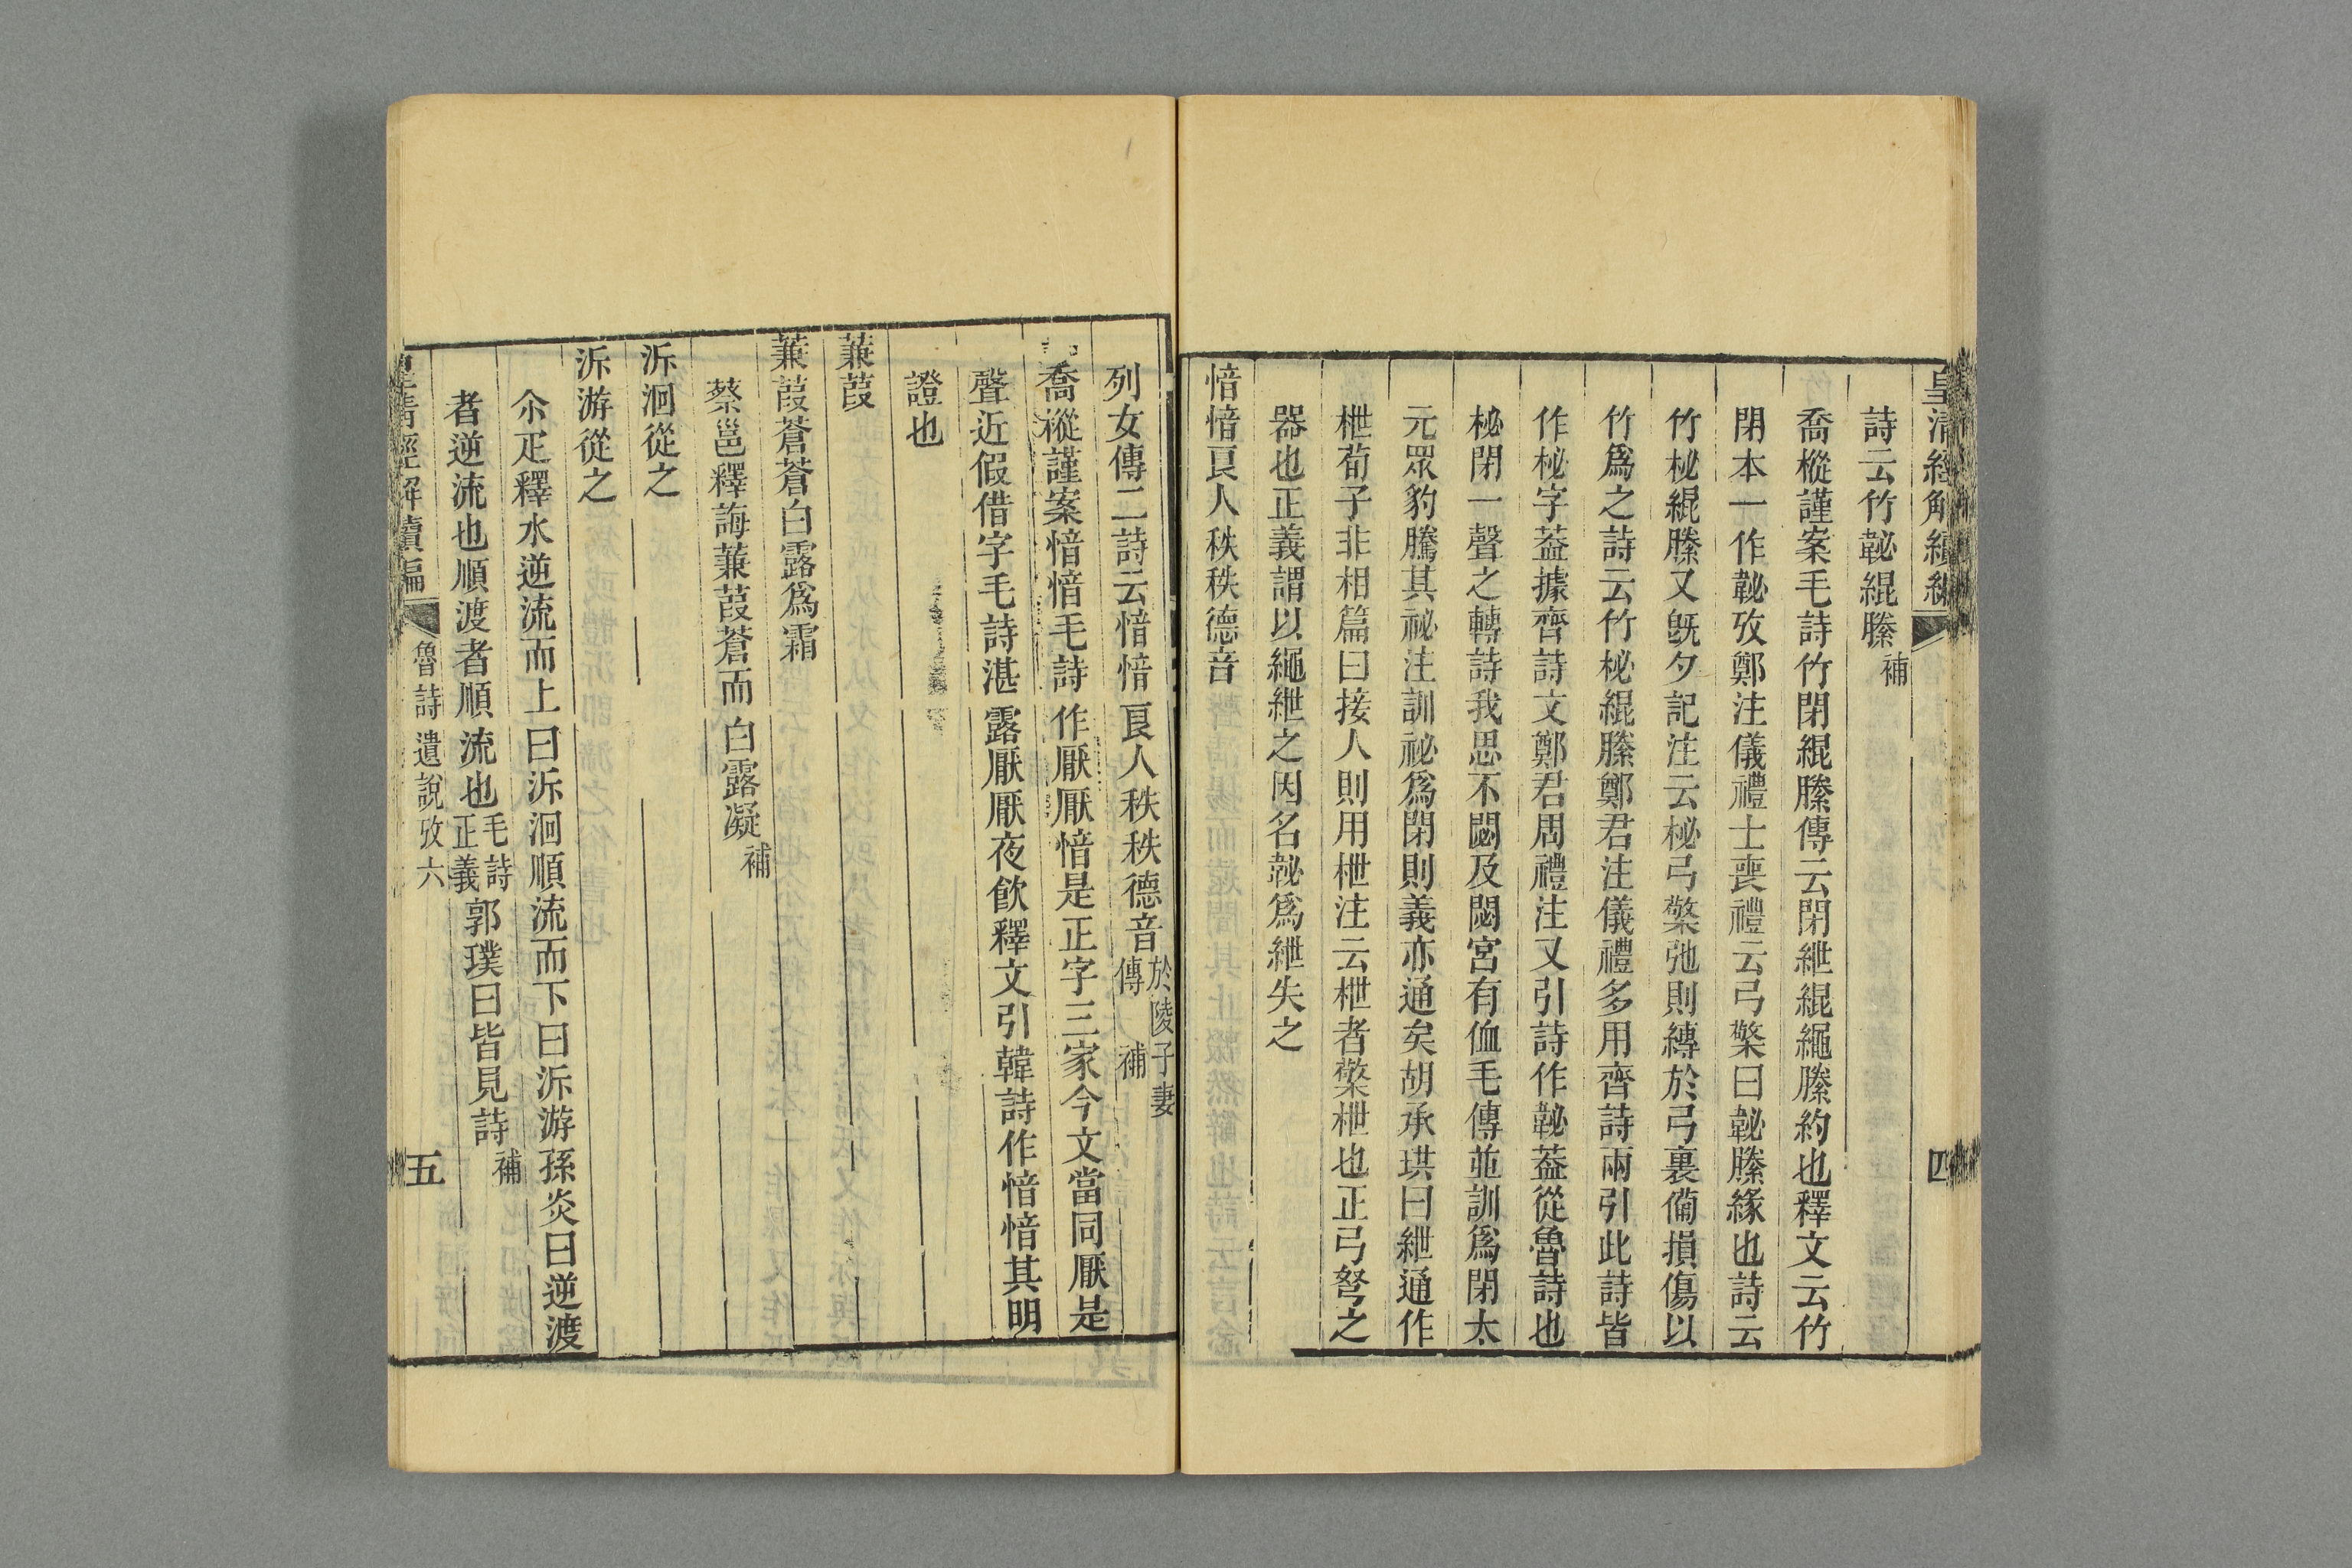 皇清經解續編
四
詩云竹䪐緄縢補
喬樅謹案毛詩竹閉緄縢傳云閉紲緄繩縢約也釋文云竹
閉本一作䪐攷鄭注儀禮士喪禮云弓檠曰䪐縢緣也詩云
竹柲緄縢又旣夕記注云柲弓檠弛則縛於弓裏備損傷以
竹爲之詩云竹柲緄縢鄭君注儀禮多用齊詩兩引此詩皆
作柲字葢據齊詩文鄭君周禮注又引詩作䪐葢從魯詩也
柲閉一聲之轉詩我思不閟及閟宮有侐毛傳並訓爲閉太
元眾豹騰其祕注訓祕爲閉則義亦通矣胡承珙曰紲通作
枻荀子非相篇曰接人則用枻注云枻者檠枻也正弓弩之
器也正義謂以繩紲之因名䪐爲紲失之
愔愔良人秩秩德音
列女傳二詩云愔愔良人秩秩德音於陵子妻傳 補
喬樅謹案愔愔毛詩作厭厭愔是正字三家今文當同厭是
聲近假借字毛詩湛露厭厭夜飲釋文引韓詩作愔愔其明
證也
蒹葭
蒹葭蒼蒼白露爲霜
蔡邕釋誨蒹葭蒼而白露凝補
泝洄從之
泝游從之
尒疋釋水逆流而上曰泝洄順流而下曰泝游孫炎曰逆渡
者逆流也順渡者順流也毛詩正義郭璞曰皆見詩補
皇清經解續編
魯詩遺說攷六
五